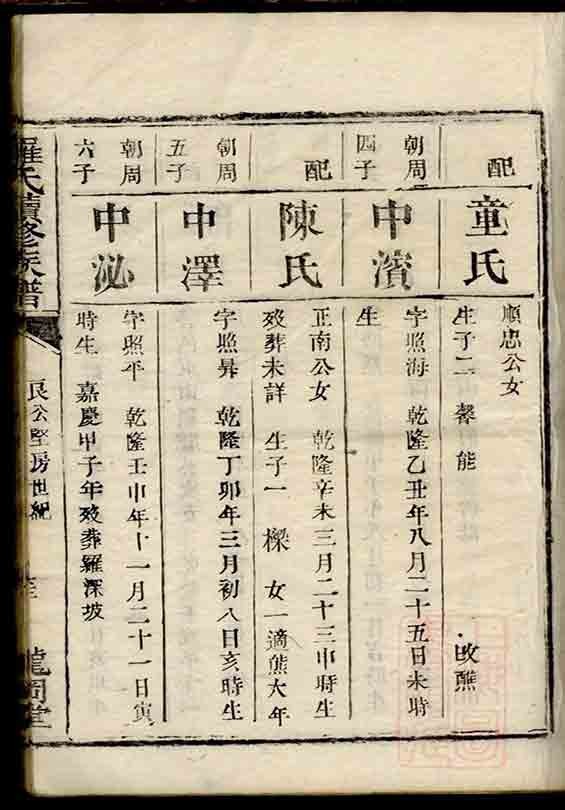 配
童氏
順忠公女
生子二 馨 能 改醮
朝周
四子
中濱
字照海 乾隆乙丑年八月二十五日未時
生
配
陳氏
正南公女 乾隆辛未三月二十三申時生
歿葬未詳 生子一 樑 女一適熊大年
朝周
五子
中澤
字照昇 乾隆丁卯年三月初八日亥時生
朝周
六子
中泌
字照平 乾隆壬申年十一月二十一日寅
時生 嘉慶甲子年歿葬羅深坡
羅氏續修族譜
良公堅房世紀